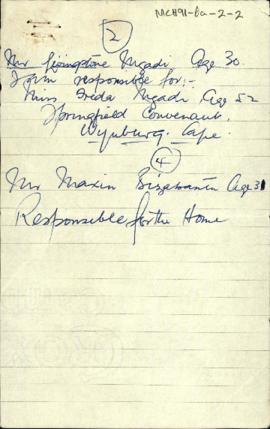 MCH91-ba-2-2
2
Mr Livingstone Mgadi, Age 30.
I am responsible for:-
Miss Frida Mgadi Age 52
Springfield Convenant,
Wynburg. Cape.
4
Mr Maxin Age 31
Responsible for the Home